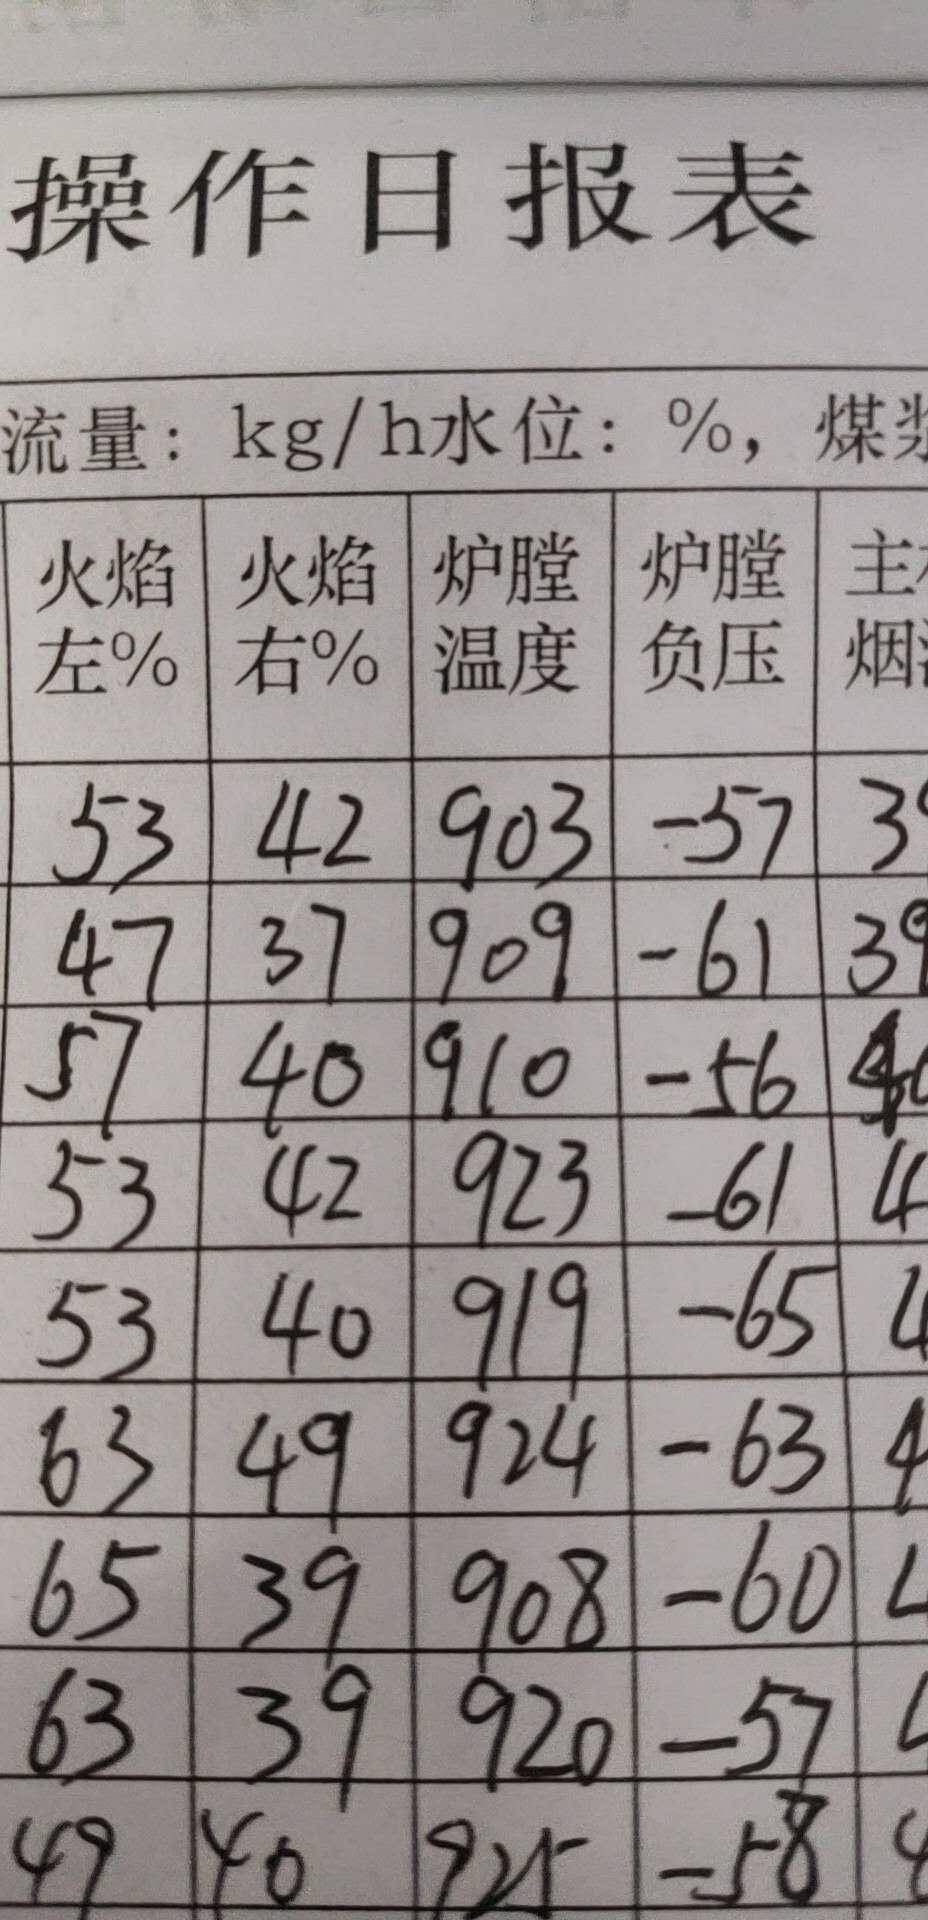 操作日报表
流量：kg/h水位：%，煤浆
火焰 火焰 炉膛 炉膛 主
左% 右% 温度 负压 烟
53 42 903 -57 39
47 37 909 -61 39
57 40 910 -56 40
53 42 923 -61 4
53 40 919 -65 4
63 49 924 -63 4
65 39 908 -60 4
63 39 920 -57 4
49 40 925 -58 4